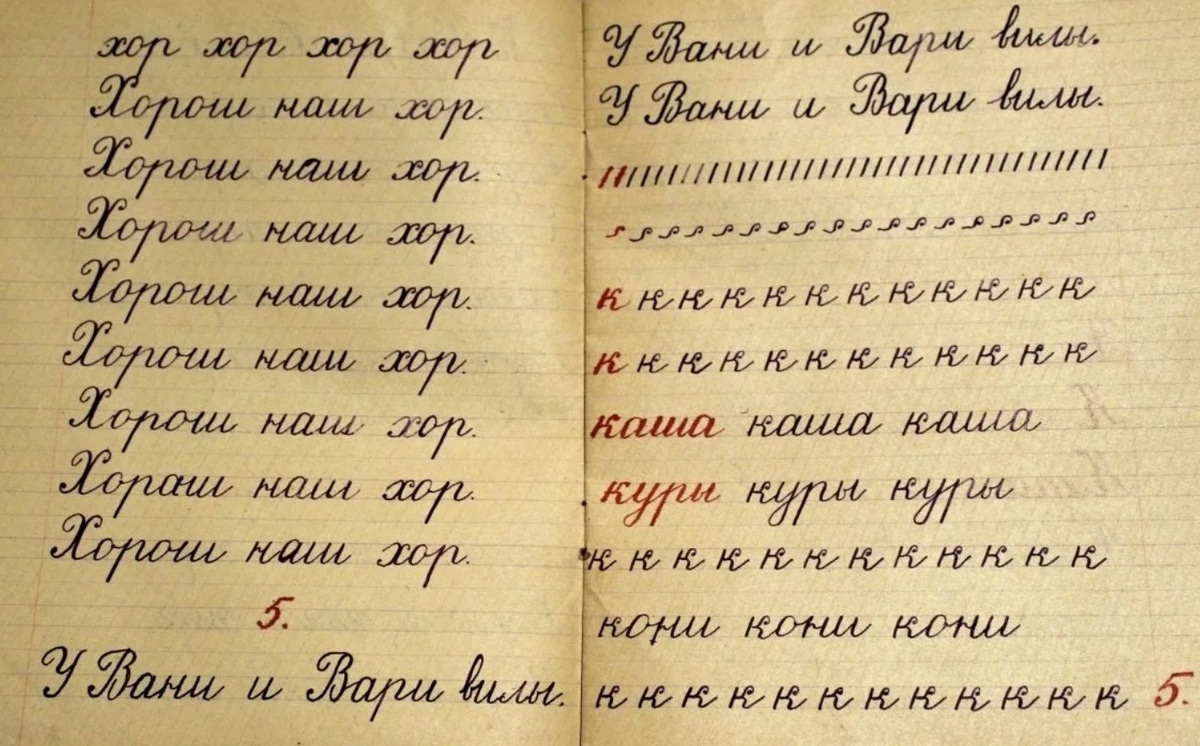 хор хор хор хор
Хорош наш хор.
Хорош наш хор.
Хорош наш хор.
Хорош наш хор.
Хорош наш хор.
Хорош наш хор.
Хораш наш хор.
Хорош наш хор.
5.
У Вани и Вари вилы.
У Вани и Вари вилы.
У Вани и Вари вилы.
к к к к к к к к к к к к
к к к к к к к к к к к к
каша каша каша
куры куры куры
к к к к к к к к к к к к
кони кони кони
к к к к к к к к к к к к к 5.